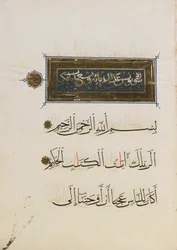 سورة يونس عليه السلام
بسم الله الرحمن الرحيم
الر تلك آيات الكتاب الحكيم
أكان للناس عجبا أن أوحينا إلى